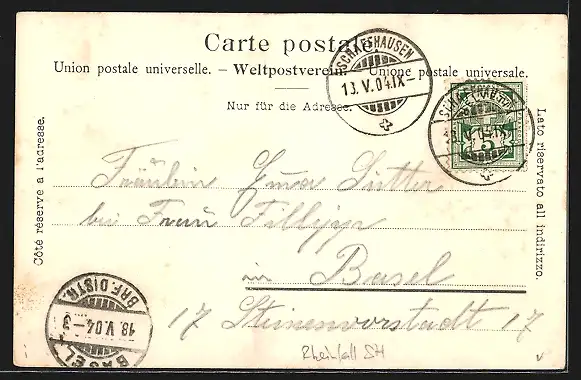 Carte postale.
Union postale universelle. – Weltpostverein. – Unione postale universale.
Nur für die Adresse.
Côté réservé à l'adresse.
Lato riservato all indirizzo.
SCHAFFHAUSEN
13. V. 04. IX –
5
Fräulein Emma Sutter
bei Frau Fillipp
in Basel
17 Steinenvorstadt 17
BASEL
18. V. 04 – 3
BRF. DISTR.
Rheinfall SH